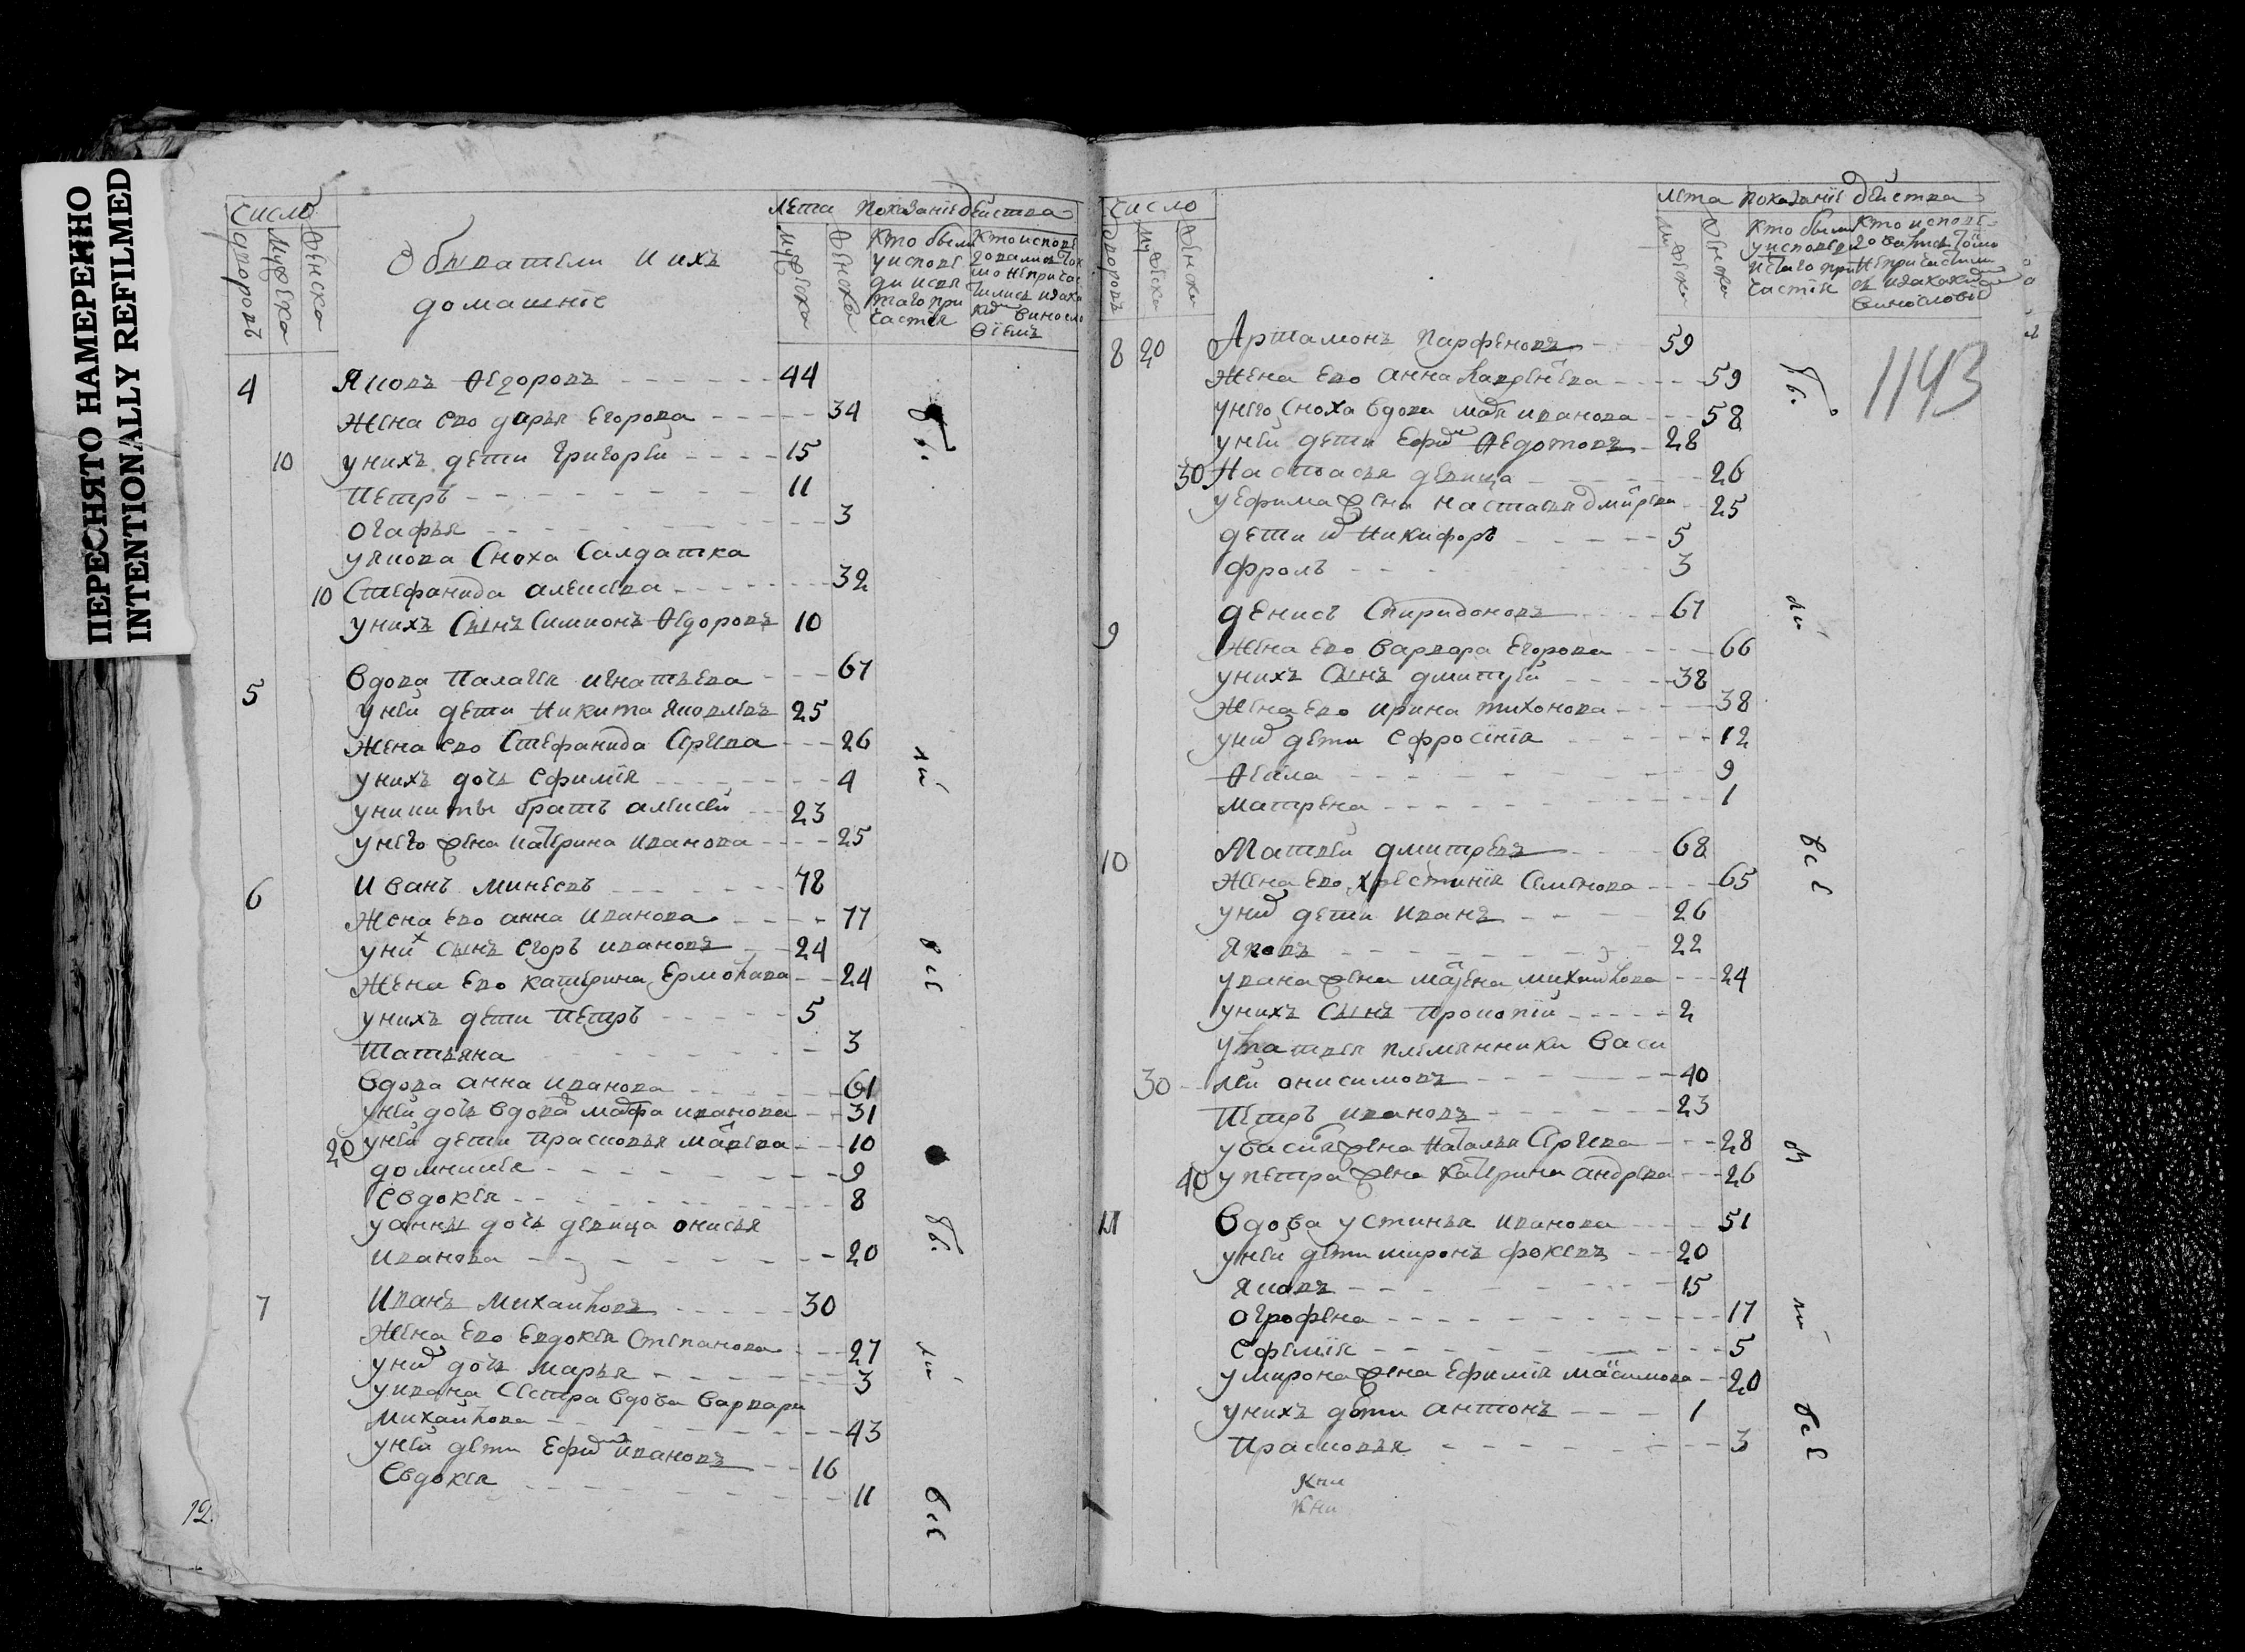 ПЕРЕСНЯТО НАМЕРЕННО
INTENTIONALLY REFILMED
число
дворовъ
мужеска
женска
Обыватели и ихъ
домашніе
лета
показаніе действа
мужеска
женска
кто были
у испове
ди и свя
таго при
частия
кто испове
довались ток
мо непричас
тились и за ка
ким виносло
виемъ
4 Яковъ Ѳедоровъ 44
жена ево дарья Егорова 34
10 у нихъ дети Григорей 15
Петръ 11
огафья 3
у якова сноха салдатка
10 Стефанида алексева 32
у нихъ сынъ Симионъ Ѳедоровъ 10
5 вдова Палагия игнатьева 67
у ней дети Никита яковлевъ 25
жена ево Стефанида Сргева 26
у нихъ дочь ефимія 4
у никиты братъ алексей 23
у него жена катерина иванова 25
6 Иванъ минеевъ 78
жена ево анна иванова 77
у них сынъ егоръ ивановъ 24
жена ево катерина Ермолаева 24
у нихъ дети Петръ 5
Татьяна 3
вдова анна иванова 61
у ней дочь вдова марфа иванова 31
20 у ней дети Прасковья 10
домникия 9
евдокия 8
у анны дочь девица онисья
иванова 20
7 Иванъ Михаиловъ 30
жена ево Евдокия Степанова 27
у них дочь марья 3
у ивана сестра вдова варвара
михайлова 43
у ней дети Ефим ивановъ 16
Евдокия 11
12
число
дворовъ
мужеска
женска
лета
показаніе действа
мужеска
женска
кто были
у исповеди
и святаго при
частия
кто испове
довались токмо
не причасти
сь и за каким
винословие
1143
8 20 Артамонъ Парфеновъ 59
жена ево анна 59
у него сноха вдова иванова 58
у ней дети Ефим Ѳедотовъ 28
30 Настасья девица 26
у ефима жена настасья 25
дети их Никифоръ 5
фролъ 3
9 денисъ Спиридоновъ 67
жена ево варвора Егорова 66
у нихъ сынъ дмитрей 38
жена ево ирина тихонова 38
у них дети ефросінія 12
Ѳекла 9
матрена 1
10 Матвеи дмитревъ 68
жена ево христинія Семенова 65
у них дети иванъ 26
яковъ 22
у ивана жена михайлова 24
у нихъ сынъ Прокопіи 2
у матвея племянники васи
30 лей онисимовъ 40
Петръ ивановъ 23
у васия жена наталья Сргева 28
40 у петра жена катерина андрева 26
11 вдова устинья иванова 51
у ней дети миронъ фокеевъ 20
яковъ 15
огрофена 17
ефимія 5
у мирона жена Ефимія максимова 20
у нихъ дети антонъ 1
Прасковья 3
Кни
Кни